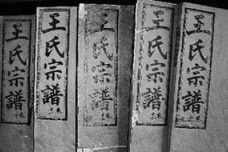 王氏宗譜
王氏宗譜
王氏宗譜
王氏宗譜
王氏宗譜